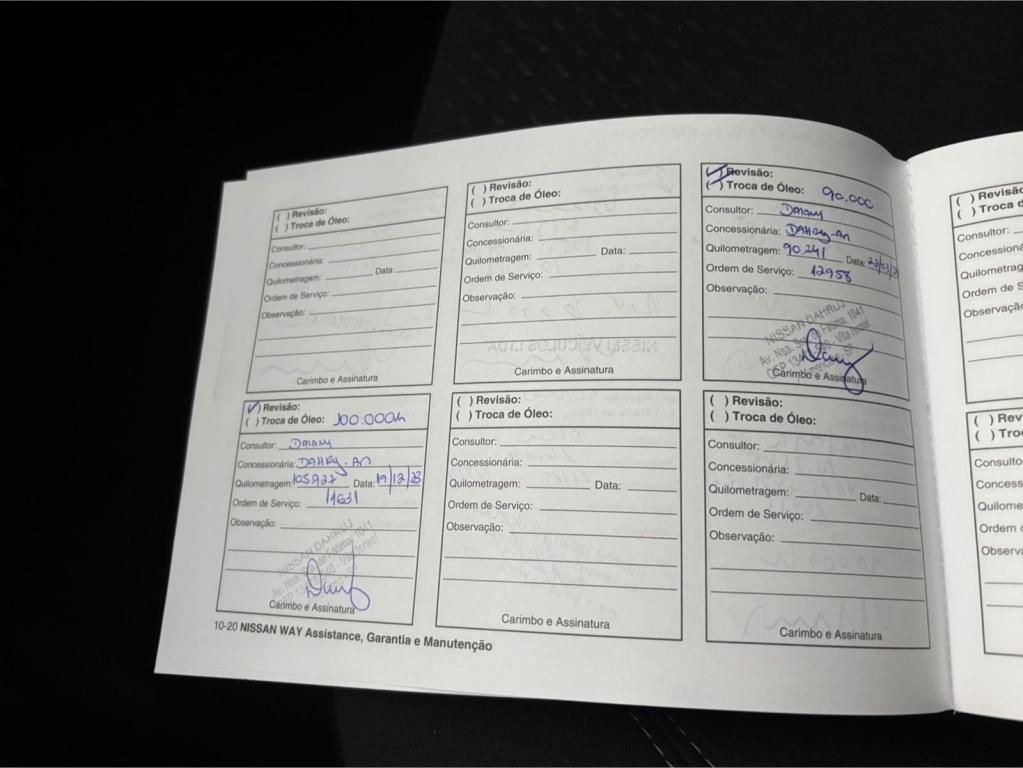 ( ) Revisão:
( ) Troca de Óleo:
Consultor:
Concessionária:
Quilometragem: Data:
Ordem de Serviço:
Observação:
Carimbo e Assinatura
( ) Revisão:
( ) Troca de Óleo:
Consultor:
Concessionária:
Quilometragem: Data:
Ordem de Serviço:
Observação:
Carimbo e Assinatura
( ) Revisão:
( ) Troca de Óleo: 90.000
Consultor: Daiany
Concessionária: DAHRUJ-An
Quilometragem: 90.241 Data:
Ordem de Serviço: 12958
Observação:
NISSAN DAHRUJ
Av. Nsa. Sra. de Fátima, 1041
Carimbo e Assinatura
( ) Revisão:
( ) Troca de Óleo: 100.000
Consultor: Daiany
Concessionária: DAHRUJ-An
Quilometragem: 105927 Data: 19/12/23
Ordem de Serviço: 14631
Observação:
NISSAN DAHRUJ
Av. Nsa. Sra. de Fátima, 1041
Carimbo e Assinatura
( ) Revisão:
( ) Troca de Óleo:
Consultor:
Concessionária:
Quilometragem: Data:
Ordem de Serviço:
Observação:
Carimbo e Assinatura
( ) Revisão:
( ) Troca de Óleo:
Consultor:
Concessionária:
Quilometragem: Data:
Ordem de Serviço:
Observação:
Carimbo e Assinatura
10-20 NISSAN WAY Assistance, Garantia e Manutenção
( ) Revisã
( ) Troca d
Consultor:
Concessioná
Quilometrag
Ordem de S
Observação
( ) Revi
( ) Tro
Consulto
Concess
Quilome
Ordem
Observa